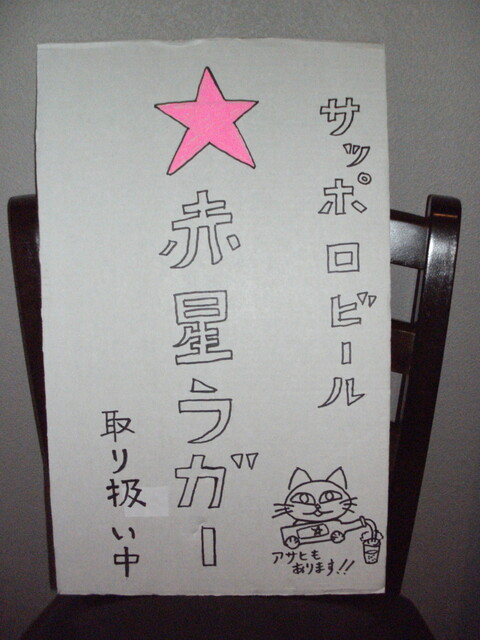 サッポロビール
赤星ラガー
取り扱い中
アサヒも
あります!!